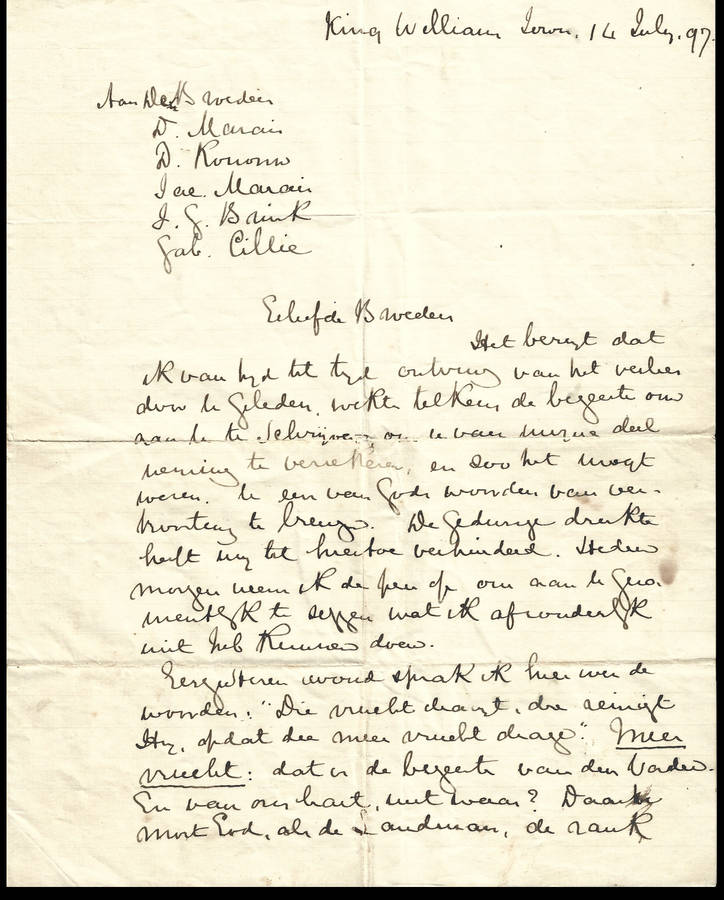 King William Town. 14 July. 97.
Aan De Broeders
D. Marais
D. Rossouw
Jac. Marais
J. G. Brink
Gab. Cillie
Geliefde Broeders
Het berigt dat
ik van tyd tot tyd ontving van het verlies
door U geleden, wekte telkens de begeerte om
aan U te schrijven, om u van mijne deel
neming te verzekeren, en zoo het mogt
wezen, U een van Gods woorden van ver-
troosting te brengen. De gedurige drukte
heeft my tot hiertoe verhinderd. Heden
morgen neem ik de pen op om aan U geza
mentlyk te zeggen wat ik afzonderlyk
niet heb kunnen doen.
Eergisteren avond sprak ik hier over de
woorden: "Die vrucht draagt, die reinigt
Hy, opdat die meer vrucht drage". Meer
vrucht: dat is de begeerte van den Vader.
En van ons hart, niet waar? Daar
moet God, als de Landman, de rank